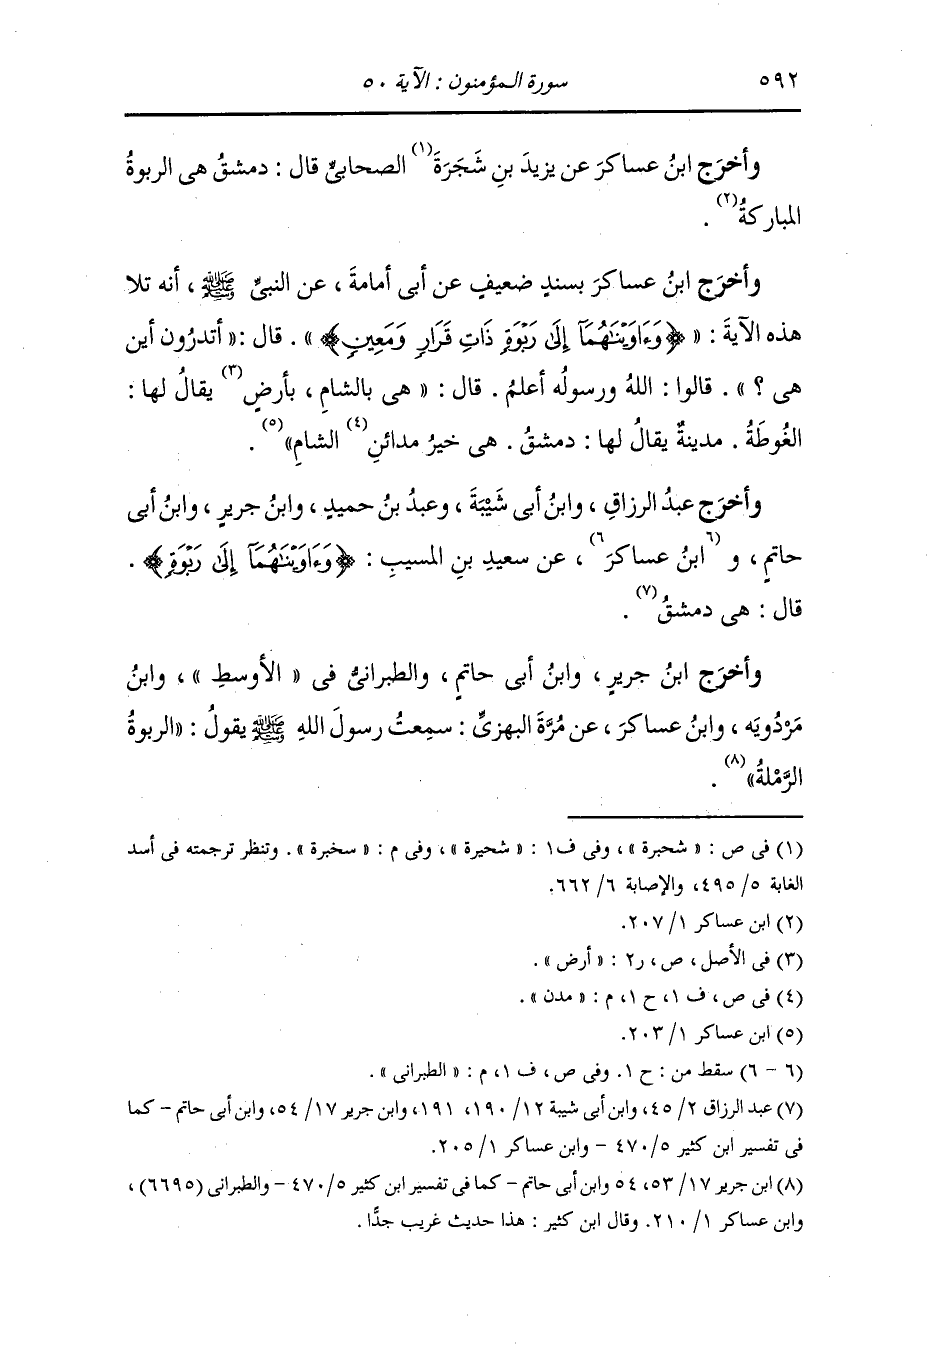 ٥٩٢
سورة المؤمنون : الآية ٥٠
وأخرَج ابنُ عساكرَ عن يزيدَ بنِ شَجَرَةَ(١) الصحابىِّ قال : دمشقُ هى الربوةُ
المباركةُ(٢) .
وأخرَج ابنُ عساكرَ بسندٍ ضعيفٍ عن أبى أمامةَ ، عن النبىِّ ﷺ ، أنه تلا
هذه الآيةَ : « ﴿وَءَاوَيْنَٰهُمَآ إِلَىٰ رَبْوَةٍ ذَاتِ قَرَارٍ وَمَعِينٍ﴾ » . قال :« أتدرُون أين
هى ؟ » . قالوا : اللهُ ورسولُه أعلمُ . قال : « هى بالشامِ ، بأرضٍ(٣) يقالُ لها :
الغُوطَةُ . مدينةٌ يقالُ لها : دمشقُ . هى خيرُ مدائنِ(٤) الشامِ»(٥) .
وأخرَج عبدُ الرزاقِ ، وابنُ أبى شَيْبَةَ ، وعبدُ بنُ حميدٍ ، وابنُ جريرٍ ، وابنُ أبى
حاتمٍ ، و (٦ابنُ عساكرَ٦) ، عن سعيدِ بنِ المسيبِ : ﴿وَءَاوَيْنَٰهُمَآ إِلَىٰ رَبْوَةٍ﴾ .
قال : هى دمشقُ(٧) .
وأخرَج ابنُ جريرٍ ، وابنُ أبى حاتمٍ ، والطبرانىُّ فى « الأوسطِ » ، وابنُ
مَرْدُويَه ، وابنُ عساكرَ ، عن مُرَّةَ البهزىِّ : سمِعتُ رسولَ اللهِ ﷺ يقولُ : «الربوةُ
الرَّمْلةُ»(٨) .
(١) فى ص : « شحبرة » ، وفى ف١ : « شحيرة » ، وفى م : « سخبرة » . وتنظر ترجمته فى أسد
الغابة ٥/ ٤٩٥، والإصابة ٦/ ٦٦٢.
(٢) ابن عساكر ١/ ٢٠٧.
(٣) فى الأصل ، ص ، ر٢ : « أرض » .
(٤) فى ص ، ف ١، ح ١، م : « مدن » .
(٥) ابن عساكر ١/ ٢٠٣.
(٦ - ٦) سقط من : ح ١. وفى ص ، ف ١، م : « الطبرانى » .
(٧) عبد الرزاق ٢/ ٤٥، وابن أبى شيبة ١٢/ ١٩٠، ١٩١، وابن جرير ١٧/ ٥٤، وابن أبى حاتم - كما
فى تفسير ابن كثير ٥/ ٤٧٠ - وابن عساكر ١/ ٢٠٥.
(٨) ابن جرير ١٧/ ٥٣، ٥٤ وابن أبى حاتم - كما فى تفسير ابن كثير ٥/ ٤٧٠ - والطبرانى (٦٦٩٥) ،
وابن عساكر ١/ ٢١٠. وقال ابن كثير : هذا حديث غريب جدًّا .